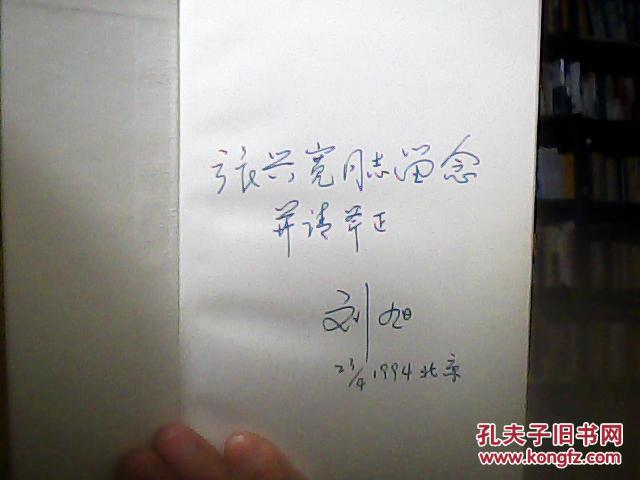 张兴宽同志留念
并请斧正
刘旭
23/4 1994 北京
孔夫子旧书网
www.kongfz.com